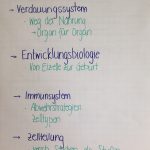 → Verdauungssystem
- Weg der Nahrung
→ Organ für Organ
→ Entwicklungsbiologie
- Von Eizelle zur Geburt
→ Immunsystem
- Abwehrstrategien
- Zelltypen
→ Zellteilung